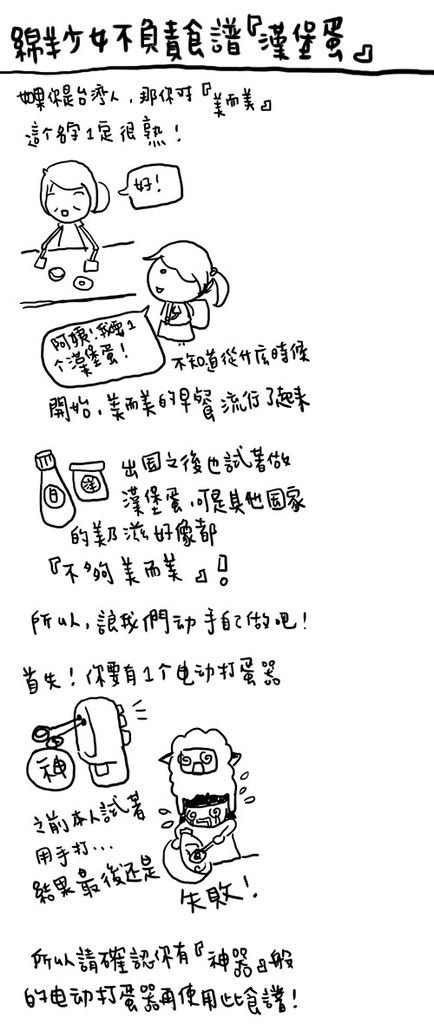 綿羊少女不負責食譜『漢堡蛋』
如果你是台湾人，那你对『美而美』
這个名字1定很熟！
好！
阿姨！我要1
个漢堡蛋！
不知道從什広時候
開始，美而美的早餐流行了起来
出国之後也試著做
漢堡蛋，可是其他国家
的美乃滋好像都
『不夠美而美』！
日
洋
所以，讓我們动手自己做吧！
首先！你要有1个电动打蛋器
神
之前本人試著
用手打...
結果最後还是
失敗！
所以請確認你有『神器』般
的电动打蛋器再使用此食譜！